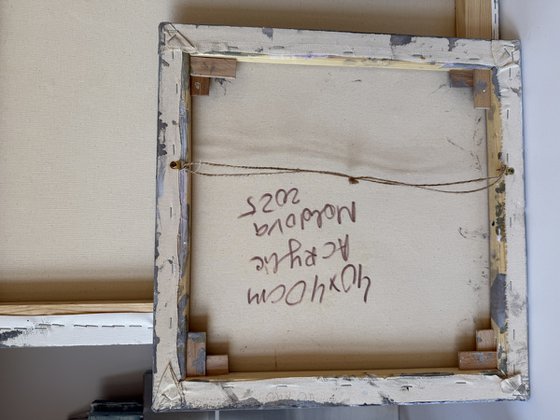 40x40cm
Acrylic
Moldova
2025